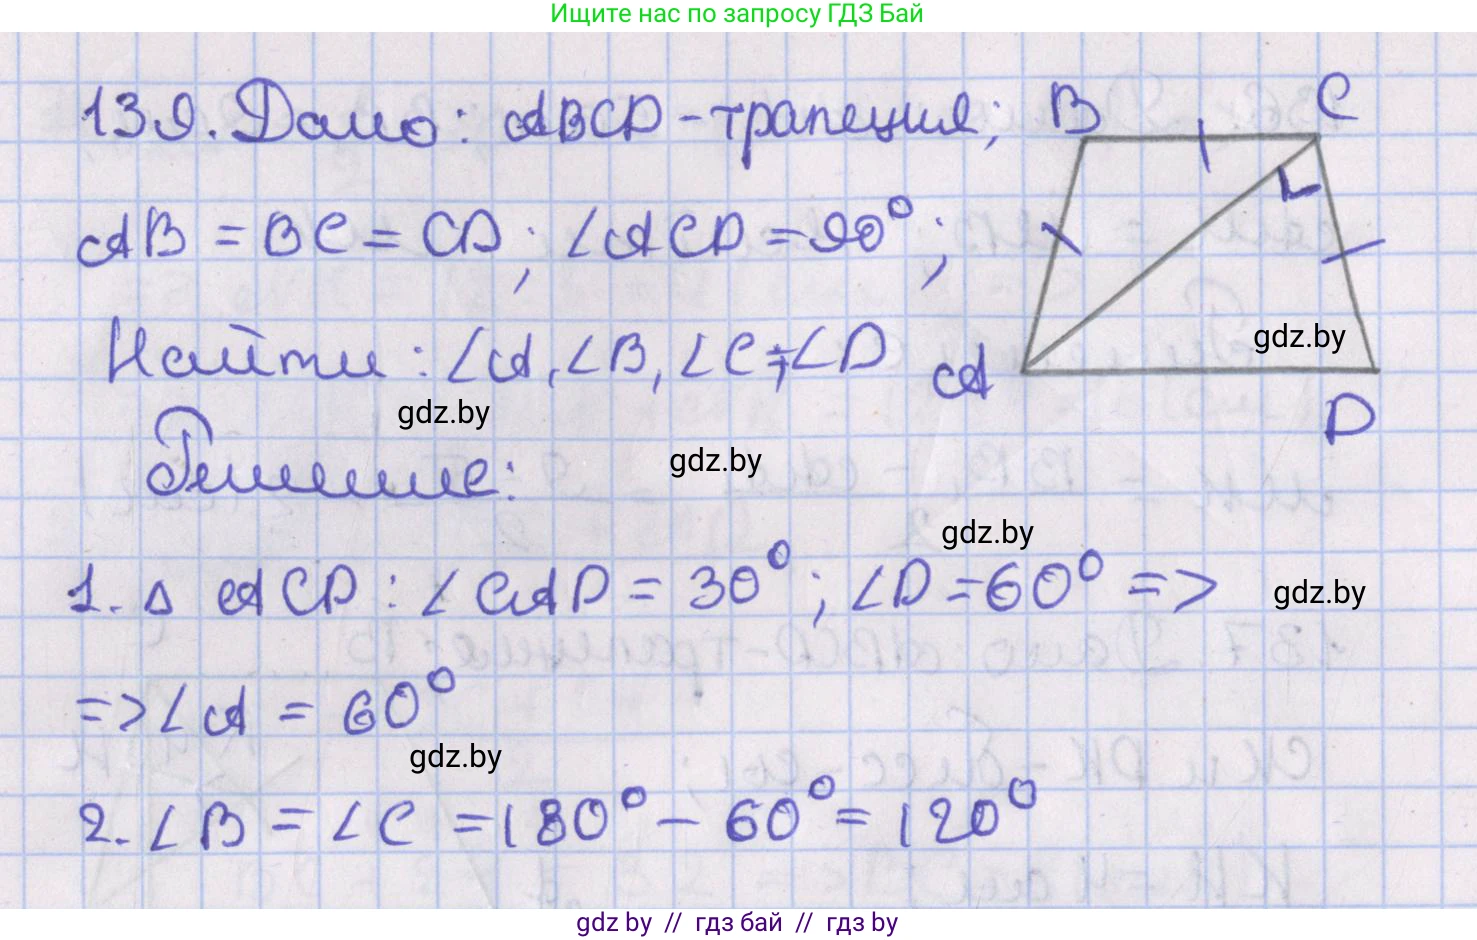 Ищите нас по запросу ГДЗ Бай
139. Дано: ABCD - трапеция;
AB = BC = CD; ∠ACD = 90°;
Найти: ∠A, ∠B, ∠C, ∠D
Решение:
1. △ ACD: ∠CAD = 30°; ∠D = 60° =>
=> ∠A = 60°
2. ∠B = ∠C = 180° - 60° = 120°
B
C
A
D
gdz.by
gdz.by
gdz.by
gdz.by
gdz.by
gdz.by
gdz by // гдз бай // гдз by